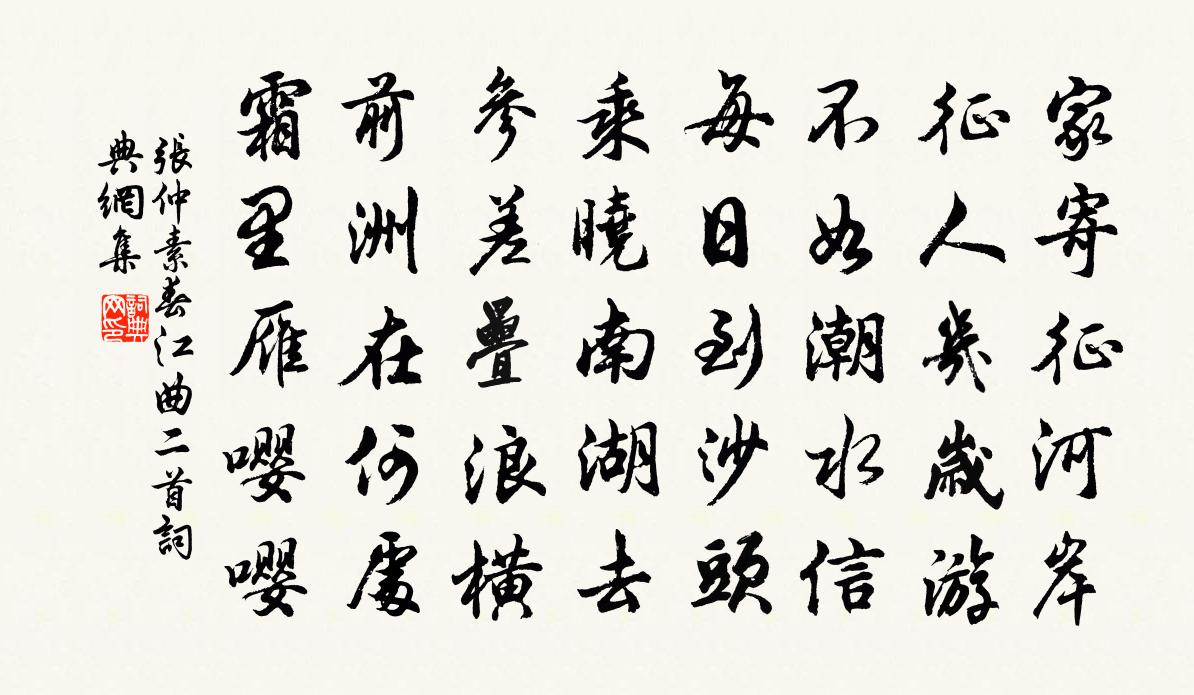 家寄征河岸
征人幾歲游
不如潮水信
每日到沙頭
乘曉南湖去
參差疊浪橫
前洲在何處
霜里雁嚶嚶
張仲素春江曲二首詞
典網集
詞典网印